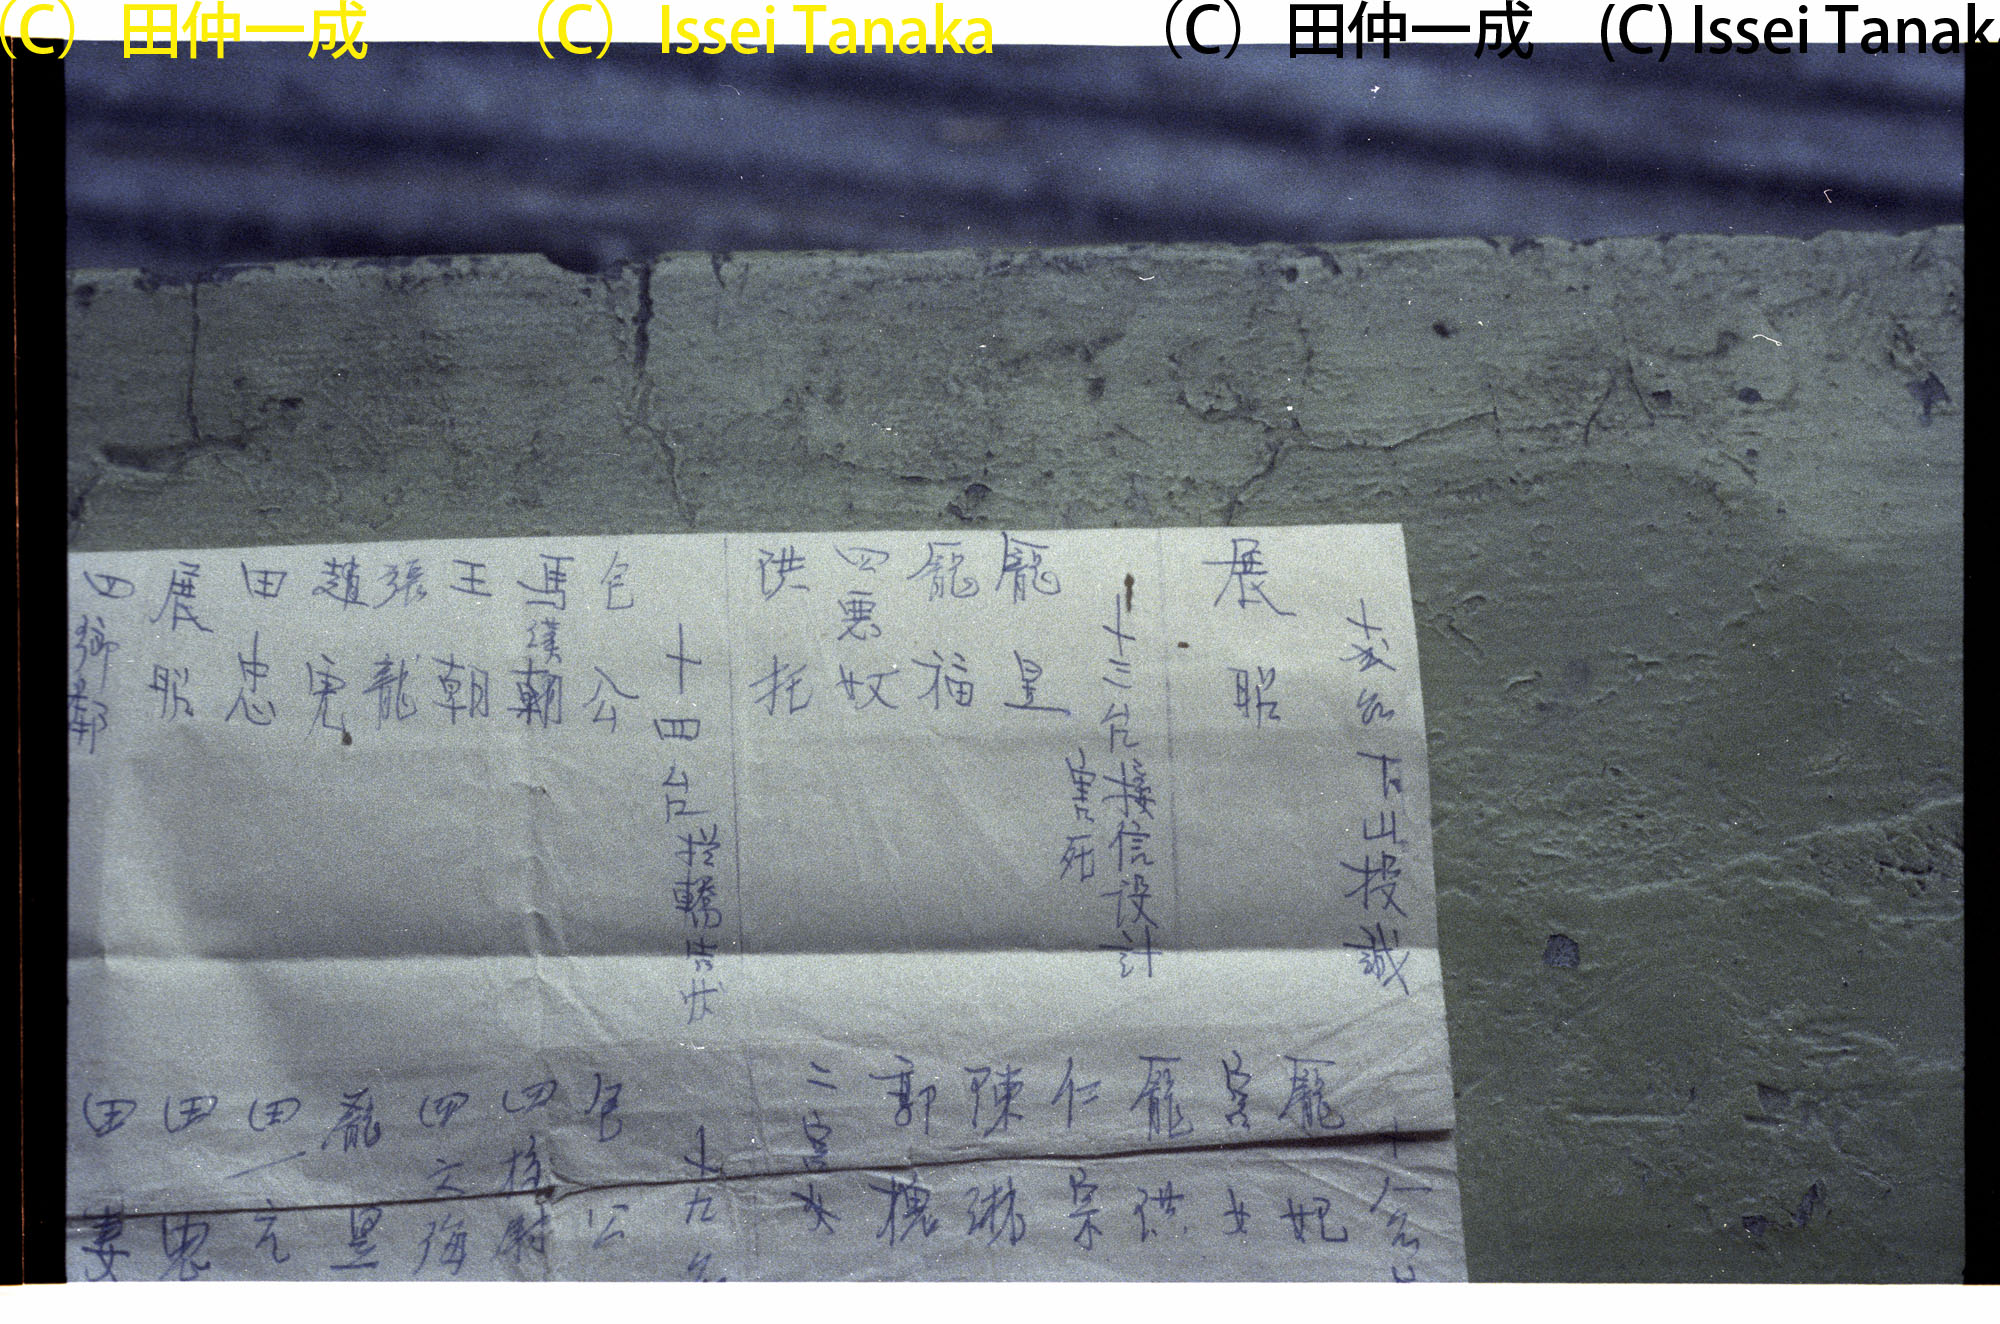 (C) 田仲一成 (C) Issei Tanaka (C) 田仲一成 (C) Issei Tanaka
台下山投誠
展昭
十三台接信設計
害死
龐昱
龐福
四惡奴
洪托
十四台 轎告状
包公
馬漢朝
王朝
張龍
趙虎
田忠
展昭
四鄉鄰
十八台
龐妃
宮女
龐洪
仁宗
陳琳
郭槐
二宮女
十九台
包公
四校尉
四大海
龐昱
田一元
田忠
田妻